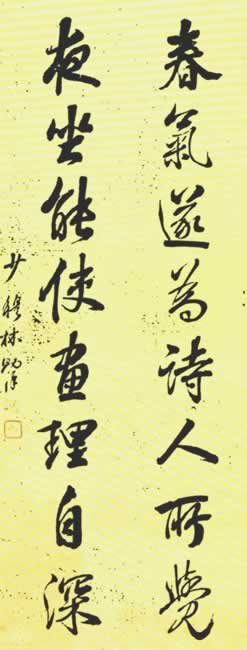 春氣遂為詩人所覺
夜坐能使畫理自深
少穆林則徐